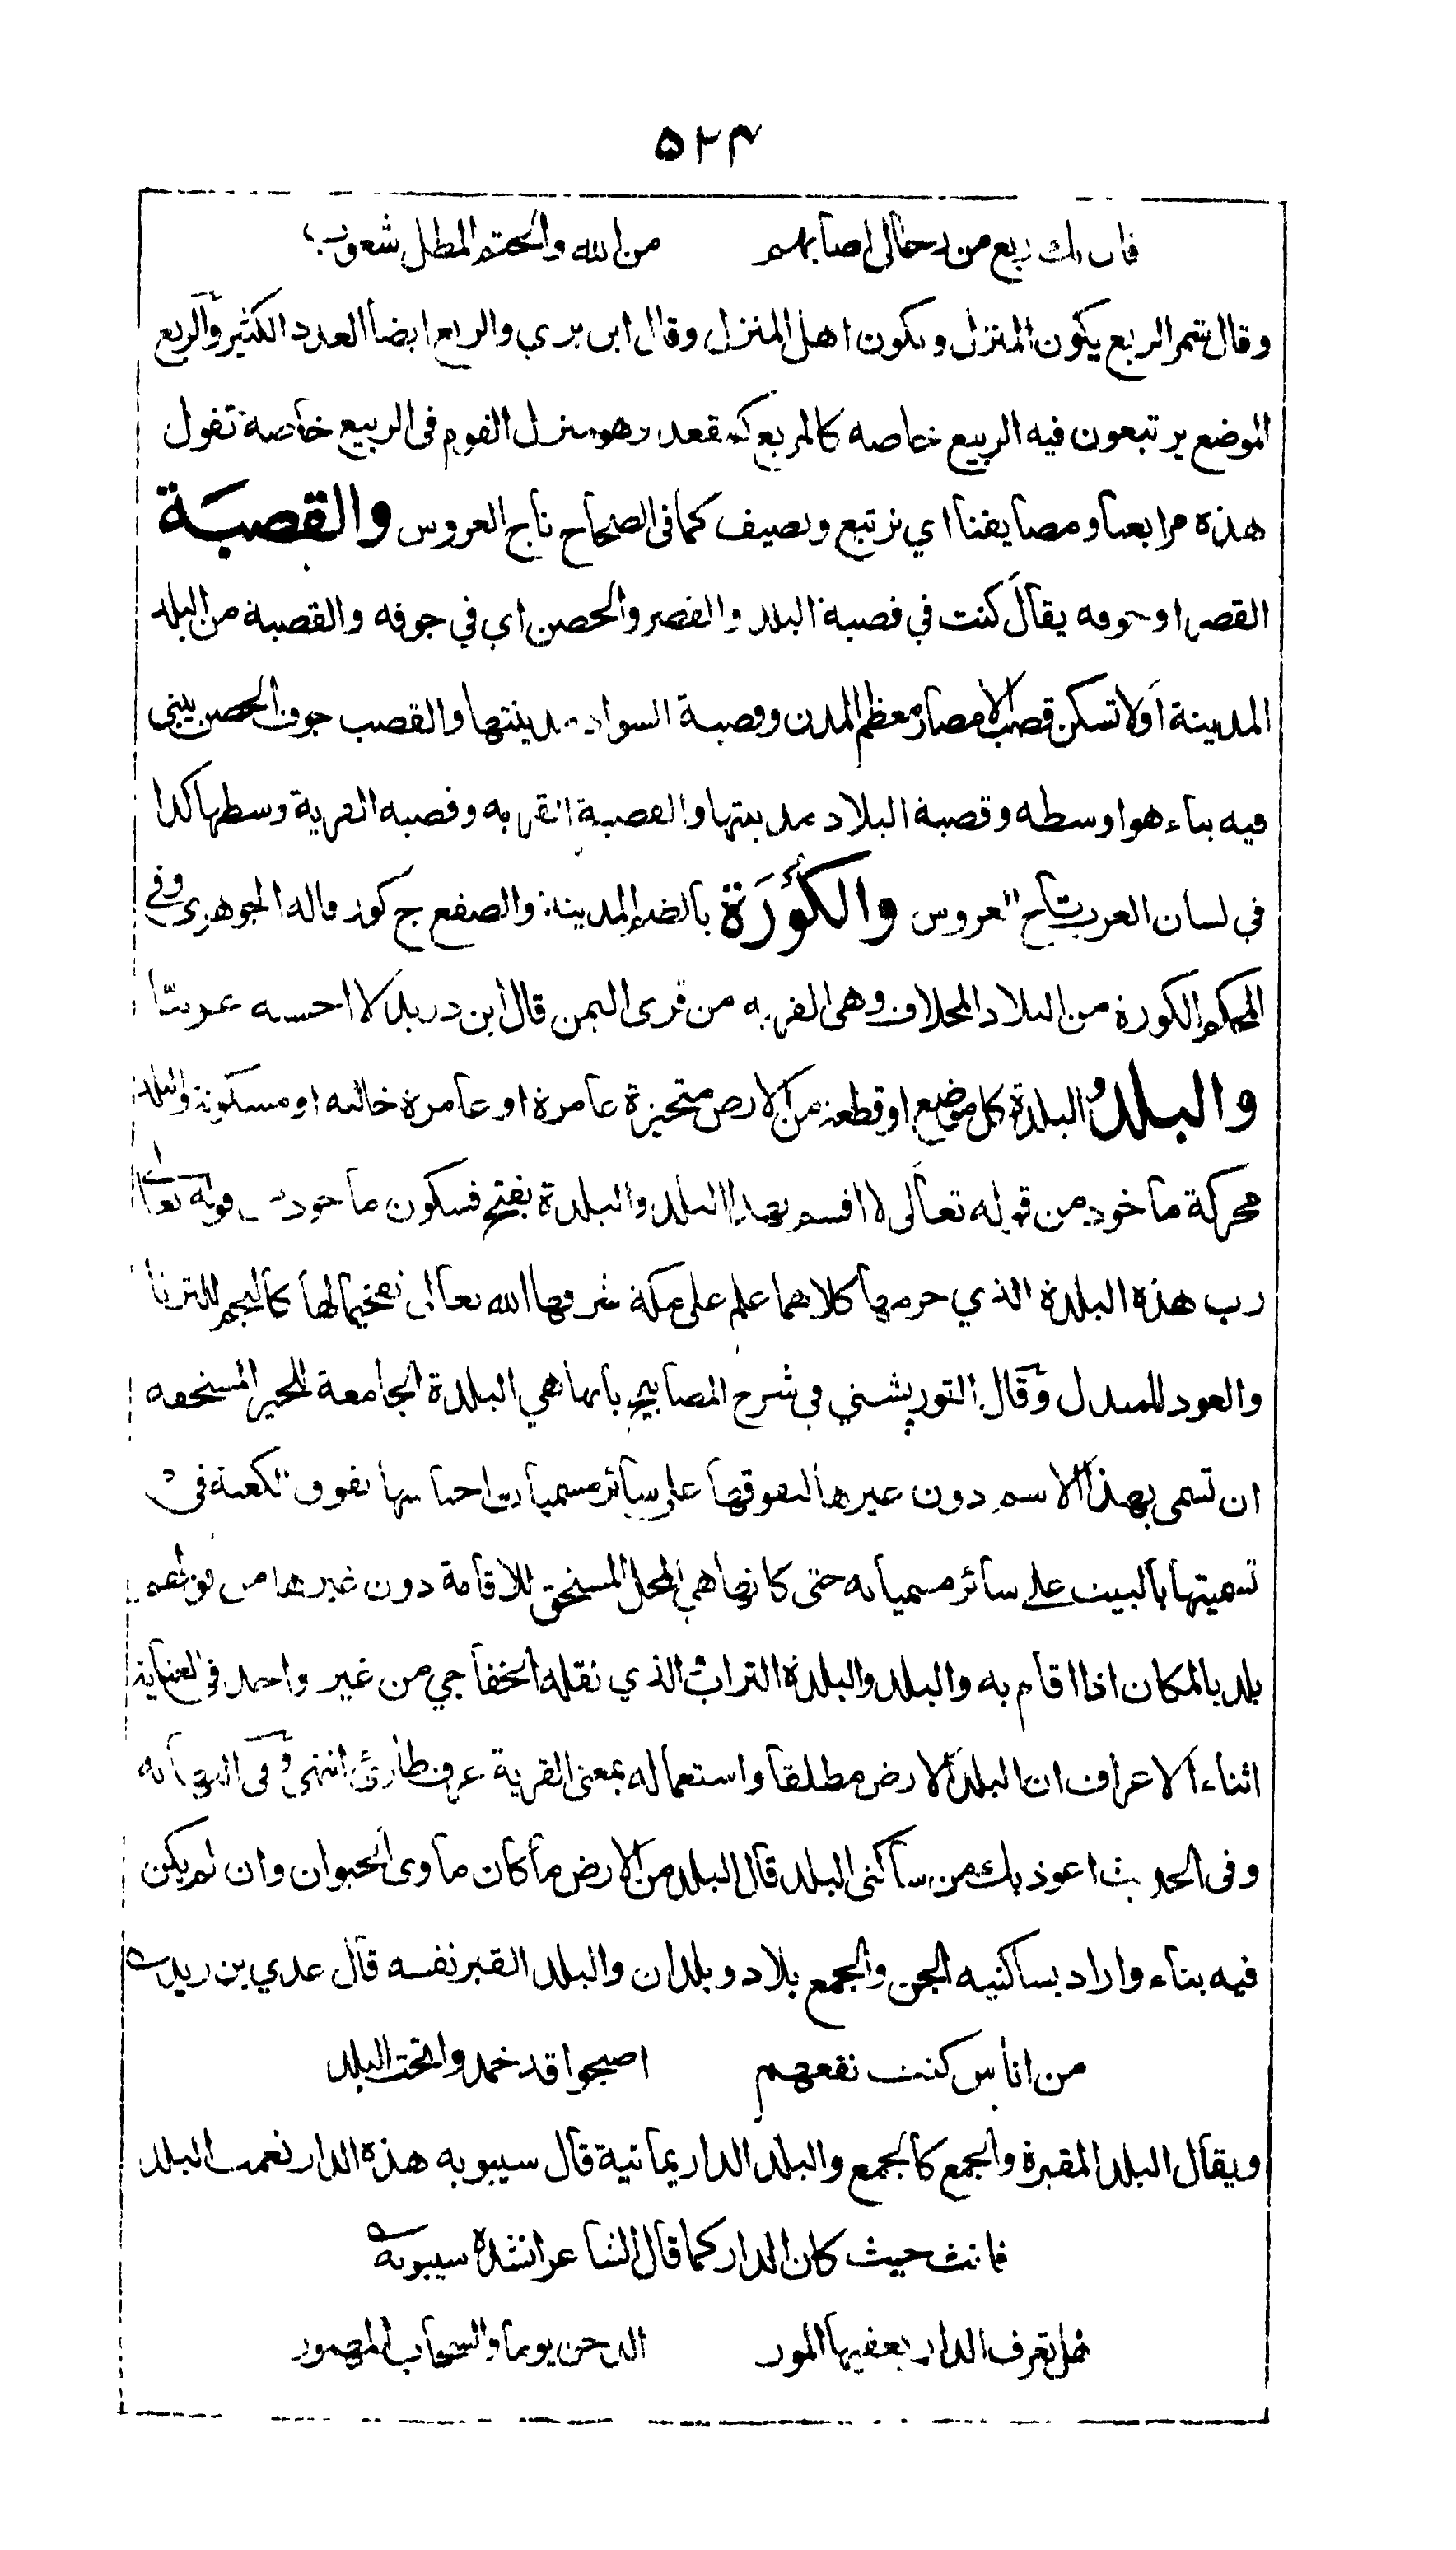 ۵۲۴
فان يك ربع من رجالي اصابهم من الله والحتم المطل شعوب
وقال شمر الربع يكون المنزل ويكون اهل المنزل وقال ابن بري والربع ايضا العدد الكثير والربع
الموضع يرتبعون فيه الربيع خاصه كالمربع كمقعد وهو منزل القوم فى الربيع خاصة تقول
هذه مرابعنا ومصايفنا اي نرتبع ونصيف كما فى الصحاح تاج العروس والقصبة
القصر او جوفه يقال كنت في قصبة البلد والقصر والحصن اي في جوفه والقصبة من البلد
المدينة اولا تسكن قصب الامصار معظم المدن وقصبة السواد مدينتها والقصب جوف الحصن يبنى
فيه بناء هو اوسطه وقصبة البلاد مدينتها والقصبة القريه وقصبه القرية وسطها كذا
في لسان العرب تاج العروس والكُوْرَة بالضم المدينة والصقع ج كور قاله الجوهري وفي
المحكم الكورة من البلاد المخلاف وهى القريه من قرى اليمن قال ابن دريد لا احسبه عربيّا
والبلد البلدة كل موضع او قطعة من الارض متحيزة عامرة او عامرة خاليه او مسكونة والبلد
محركة ماخوذ من قوله تعالى لا اقسم بهذا البلد والبلدة بفتح فسكون ماخوذ من قوله تعالى
رب هذه البلدة الذي حرمها كلاهما علم على مكة شرفها الله تعالى تفخيما لها كالنجم للثريا
والعود للمندل وقال التوربشتي في شرح المصابيح بانها هي البلدة الجامعة للخير المستحقه
ان تسمى بهذا الاسم دون غيرها لتفوقها على سائر مسميات اجناسها تفوق الكعبة فى
تسميتها بالبيت على سائر مسمياته حتى كانها هي المحل المستحق للاقامة دون غيرها من قولهم
بلد بالمكان اذا اقام به والبلد والبلدة التراب الذي نقله الخفاجي من غير واحد فى العناية
اثناء الاعراف ان البلد الارض مطلقا واستعماله بمعنى القرية عرف طارئ انتهى وفى النهايه
وفى الحديث اعوذ بك من ساكنى البلد قال البلد من الارض ما كان ماوى الحيوان وان لم يكن
فيه بناء واراد بساكنيه الجن والجمع بلاد وبلدان والبلد القبر نفسه قال عدي بن زيد
من اناس كنت نفعهم اصبحوا قد خمدوا تحت البلد
ويقال البلد المقبرة والجمع كالجمع والبلد الدار يمانية قال سيبويه هذه الدار نعمت البلد
فانث حيث كان الدار كما قال الشاعر انشده سيبويه
هل تعرف الدار يعفيها المور الدجن يوما والسحاب المهمور